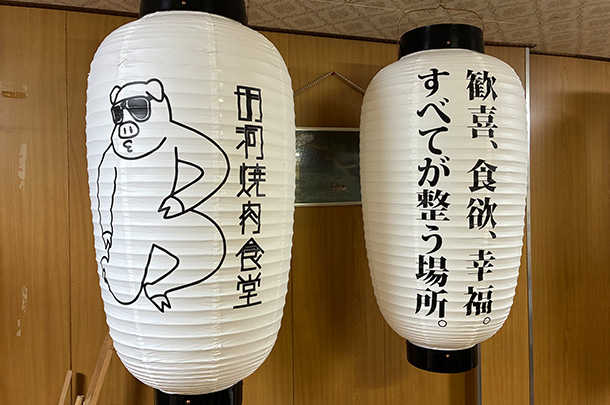 河焼肉食堂
歓喜、食欲、幸福。
すべてが整う場所。